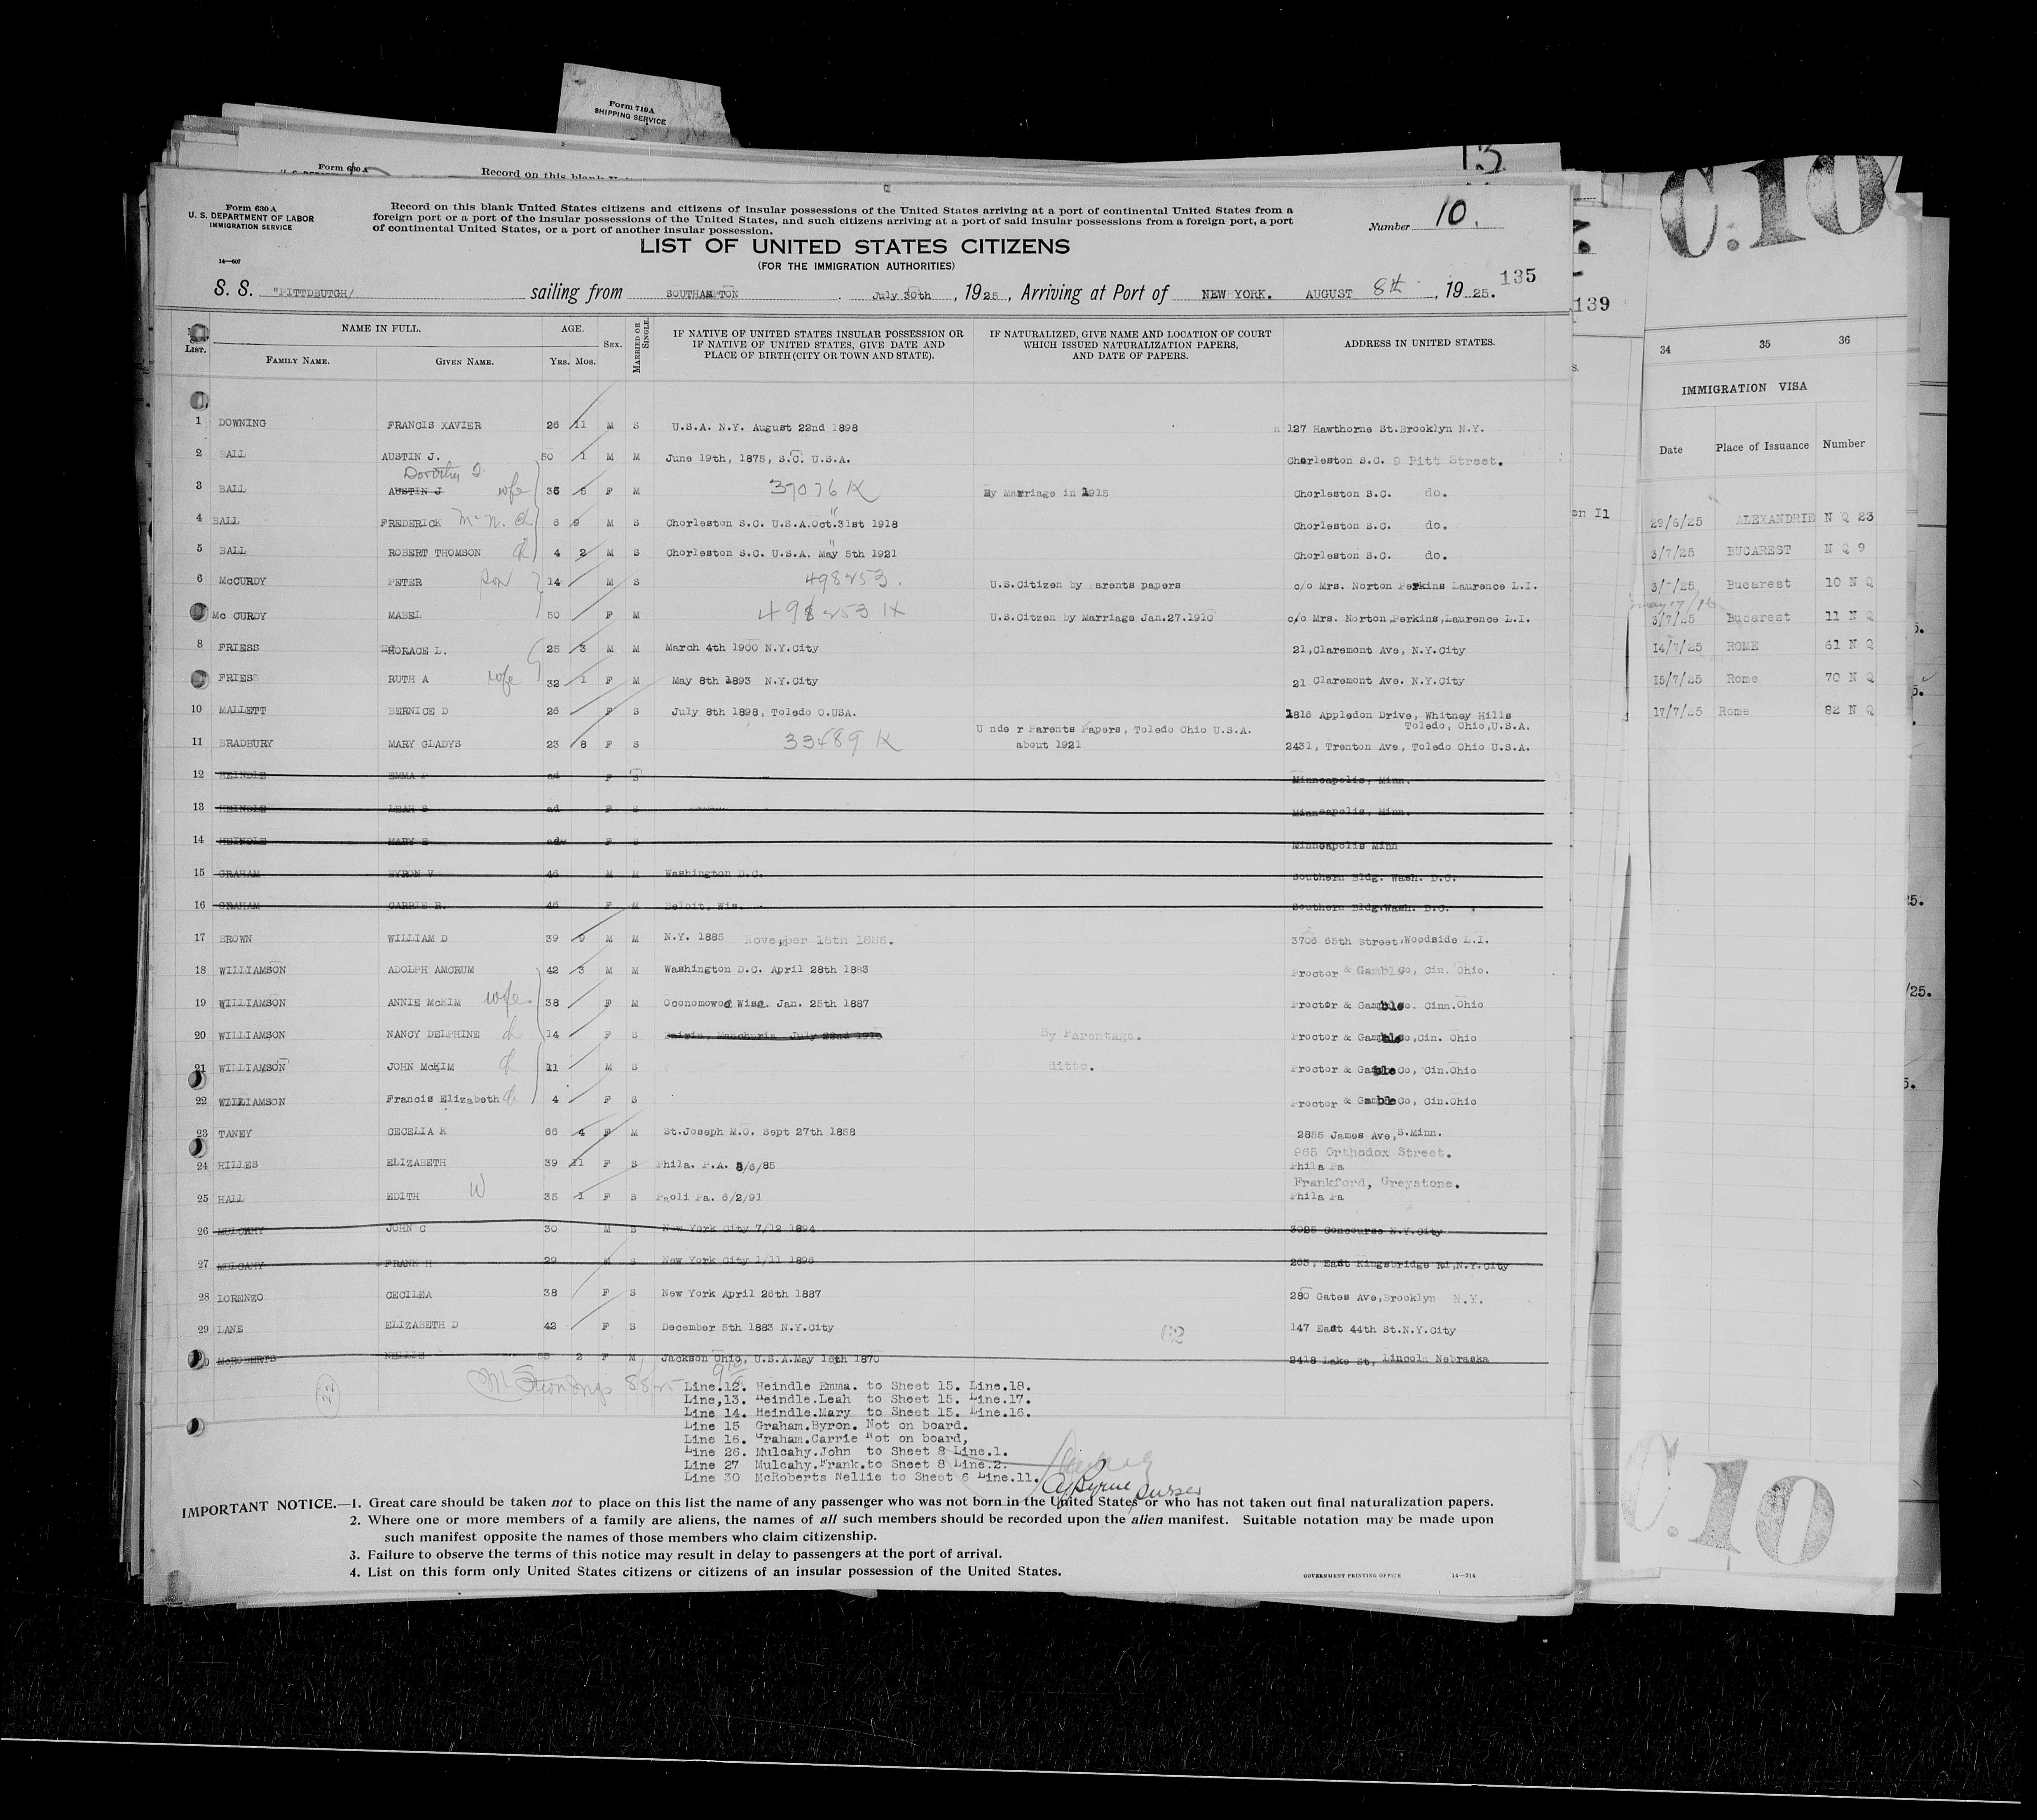 Form 710A
SHIPPING SERVICE
13
Form 630 A
Record on this blank
Form 630 A
U. S. DEPARTMENT OF LABOR
IMMIGRATION SERVICE
14—607
Record on this blank United States citizens and citizens of insular possessions of the United States arriving at a port of continental United States from a
foreign port or a port of the insular possessions of the United States, and such citizens arriving at a port of said insular possessions from a foreign port, a port
of continental United States, or a port of another insular possession.
Number 10.
LIST OF UNITED STATES CITIZENS
(FOR THE IMMIGRATION AUTHORITIES)
135
S. S. "PITTDBUTGH/ sailing from SOUTHAMPTON , July 30th , 1925 , Arriving at Port of NEW YORK. AUGUST 8th , 19 25.
LIST. NAME IN FULL. AGE. SEX. MARRIED OR SINGLE. IF NATIVE OF UNITED STATES INSULAR POSSESSION OR IF NATIVE OF UNITED STATES, GIVE DATE AND PLACE OF BIRTH (CITY OR TOWN AND STATE). IF NATURALIZED, GIVE NAME AND LOCATION OF COURT WHICH ISSUED NATURALIZATION PAPERS, AND DATE OF PAPERS. ADDRESS IN UNITED STATES.
FAMILY NAME. GIVEN NAME. YRS. MOS.
1 DOWNING FRANCIS XAVIER 26 11 M S U.S.A. N.Y. August 22nd 1898 127 Hawthorne St.Brooklyn N.Y.
2 BALL AUSTIN J. 50 1 M M June 19th, 1875, S.C. U.S.A. Charleston S.C. 9 Pitt Street.
Dorothy
3 BALL AUSTIN J wife 35 5 F M 37076 K By Marriage in 1915 Chorleston S.C. do.
4 BALL FREDERICK McN. ch 6 9 M S Chorleston S.C. U.S.A.Oct.31st 1918 Chorleston S.C. do.
5 BALL ROBERT THOMSON ch 4 2 M S Chorleston S.C. U.S.A. May 5th 1921 Chorleston S.C. do.
6 McCURDY PETER son 14 M S 498253. U.S.Citizen by Parents papers c/o Mrs. Norton Perkins Laurence L.I.
Mc CURDY MABEL 50 F M 498253 U.S.Citzen by Marriage Jan.27.1910 c/o Mrs. Norton,Perkins,Laurence L.I.
8 FRIESS HORACE L. 25 3 M M March 4th 1900 N.Y.City 21,Claremont Ave, N.Y.City
FRIESS RUTH A wife 32 1 F M May 8th 1893 N.Y.City 21 Claremont Ave. N.Y.City
10 MALLETT BERNICE D 26 F S July 8th 1898, Toledo O.USA. 1816 Appledon Drive, Whitney Hills
Toledo, Ohio,U.S.A.
11 BRADBURY MARY GLADYS 23 8 F S 33489 K U nde r Parents Papers, Toledo Ohio U.S.A.
about 1921 2431, Trenton Ave, Toledo Ohio U.S.A.
12 HEINDLE EMMA P ad F S Minneapolis, Minn.
13 HEINDLE LEAH S ad F S Minneapolis, Minn.
14 HEINDLE MARY E ad F S Minneapolis Minn
15 GRAHAM BYRON V 46 M M Washington D.C. Southern Bldg. Wash. D.C.
16 GRAHAM CARRIE R. 46 F M Beloit. Wis. Southern Bldg.Wash. D.C.
17 BROWN WILLIAM D 39 9 M M N.Y. 1885 November 18th 1886. 3706 65th street,Woodside L.I.
18 WILLIAMSON ADOLPH AMCRUM 42 3 M M Washington D.C. April 28th 1883 Proctor & Gamble Co, Cin. Ohio.
19 WILLIAMSON ANNIE McKIM wife 38 F M Oconomowoc Wis. Jan. 25th 1887 Proctor & Gamble Co. Cinn.Ohio
20 WILLIAMSON NANCY DELPHINE ch 14 F S Manchuria July 22nd 1910 By Parentage. Proctor & Gamble Co,Cin. Ohio
21 WILLIAMSON JOHN McKIM ch 11 M S ditto. Proctor & Gamble Co, Cin.Ohio
22 WILLIAMSON Francis Elizabeth ch 4 F S Proctor & Gamble Co, Cin.Ohio
23 TANEY CECELIA K 66 4 F M St.Joseph M.O. Sept 27th 1858 2855 James Ave,S.Minn.
965 Orthodox Street.
24 HILLES ELIZABETH 39 11 F S Phila. P.A. 8/6/85 Phila Pa
Frankford, Greystone.
25 HALL EDITH W 35 1 F S Paoli Pa. 6/2/91 Phila Pa
26 MULCAHY JOHN C 30 M S New York City 7/12 1894 3095 Concourse N.Y.City
27 MULCAHY FRANK H 29 M S New York City 1/11 1896 263, East Kingsbridge Rd,N.Y.City
28 LORENZO CECILEA 38 F S New York April 26th 1887 280 Gates Ave,Brooklyn N.Y.
29 LANE ELIZABETH D 42 F S December 5th 1883 N.Y.City 62 147 East 44th St.N.Y.City
McROBERTS NELLIE 55 2 F M Jackson Ohio, U.S.A.May 18th 1870 2418 Lake St, Lincoln Nebraska
22
Line.12. Heindle Emma. to Sheet 15. Line.18.
Line,13. Heindle.Leah to Sheet 15. Line.17.
Line 14. Heindle.Mary to Sheet 15. Line.16.
Line 15 Graham.Byron. Not on board.
Line 16. Graham.Carrie Not on board,
Line 26. Mulcahy.John to Sheet 8 Line.1.
Line 27 Mulcahy.Frank.to Sheet 8 Line.2.
Line 30 McRoberts Nellie to Sheet 6 Line.11.
Byrne Purser
IMPORTANT NOTICE.—1. Great care should be taken not to place on this list the name of any passenger who was not born in the United States or who has not taken out final naturalization papers.
2. Where one or more members of a family are aliens, the names of all such members should be recorded upon the alien manifest. Suitable notation may be made upon
such manifest opposite the names of those members who claim citizenship.
3. Failure to observe the terms of this notice may result in delay to passengers at the port of arrival.
4. List on this form only United States citizens or citizens of an insular possession of the United States.
GOVERNMENT PRINTING OFFICE 14—214
139
C.10
34 35 36
IMMIGRATION VISA
Date Place of Issuance Number
29/6/25 ALEXANDRIE N Q 23
3/7/25 BUCAREST N Q 9
3/7/25 Bucarest 10 N Q
3/7/25 Bucarest 11 N Q
14/7/25 ROME 61 N Q
15/7/25 Rome 70 N Q
17/7/25 Rome 82 N Q
C.10